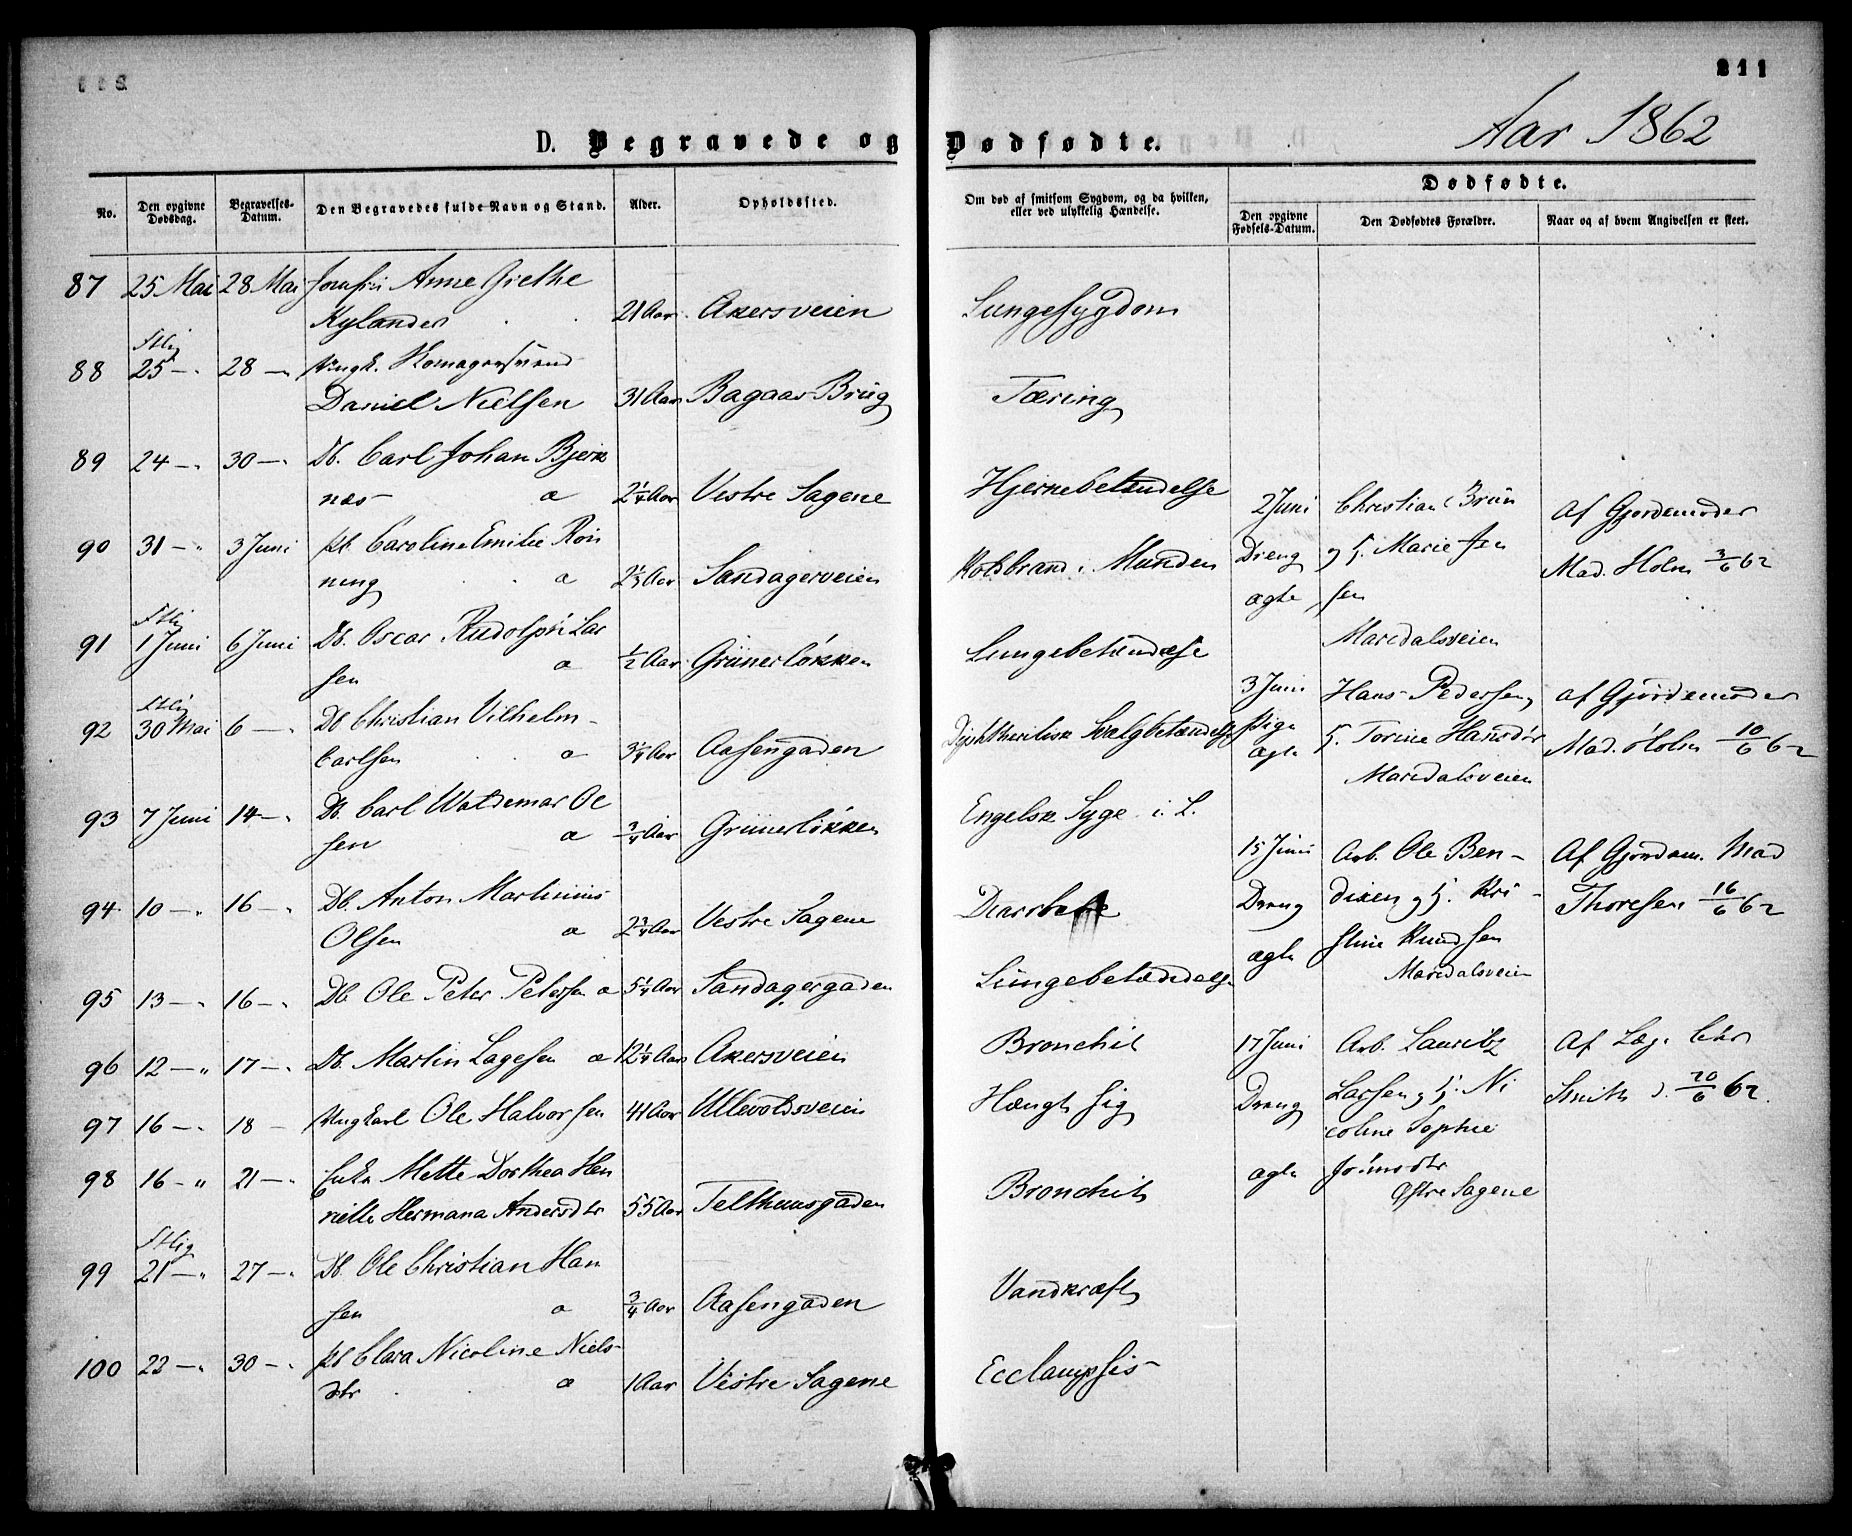 211
Aar 1862
D. Begravede og Dødfødte.
No.
Den opgivne Dødsdag.
Begravelses-Datum.
Den Begravedes fulde Navn og Stand.
Alder.
Opholdssted.
Om død af smitsom Sygdom, og da hvilken, eller ved ulykkelig Hændelse.
Dødfødte.
Den opgivne Fødsels-Datum.
Den Dødfødtes Forældre.
Naar og af hvem Angivelsen er skeet.
87 25 Mai 28 Mai Jomfru Anne Grethe
Kylander 21 Aar Akersveien Lungesygdom
88 25 — 28 — Ungk.
Daniel Nielsen 31 Aar Bagaas Brug Tæring
89 24 — 30 — Db. Carl Johan Bjerk
næs a 2 1/4 Aar Vestre Sagene Hjernebetændelse
90 31 — 3 Juni Pb. Caroline Emilie Rön
ning a 2 1/3 Aar Sandagerveien Koldbrand i Munden
91 1 Juni 6 Juni Db. Oscar Rudolph Lar
sen a 1/2 Aar Grünerløkken Lungebetændelse
92 30 Mai 6 — Db Christian Vilhelm
Carlsen a 3 1/4 Aar Aasengaden Diphtheritisk Svælgbetændelse
93 7 Juni 14 — Db. Carl Waldemar Ol
sen a 3/4 Aar Grünerløkken Engelsk Syge i L.
94 10 — 16 — Db. Anton Martinius
Olsen a 2 3/4 Aar Vestre Sagene
95 13 — 16 — Db Ole Peter Petersen a 5 1/4 Aar Sandagergaden Lungebetændelse
96 12 — 17 — Db. Martin Lagesen a 12 1/4 Aar Akersveien Bronchit
97 16 — 18 — Ungkarl Ole Halvorsen 41 Aar Ullevoldsveien Hængt sig
98 16 — 21 — Enke Mette Dorthea Hen
riette Hermana Andersdtr 55 Aar Telthuusgaden Bronchit
99 21 — 27 — Db. Ole Christian Han
sen a 3/4 Aar Aasengaden Vandkræft
100 22 — 30 — Pb Clara Nicoline Niels
dtr a 1 Aar Vestre Sagene Ecclampsis
2 Juni Christian Brun Af Gjordemoder
Dreng og H. Marie Jen Mad. Holm 3/6 62
ægte sen
Maridalsveien
3 Juni Hans Pedersen, af Gjordemoder
Pige H. Torine Hansdtr Mad. Holm 10/6 62
ægte Maridalsveien
15 Juni Arb. Ole Ben- Af Gjordem. Mad
Dreng dixen og H. Kri- Thoresen 16/6 62
ægte stine Knudsen
Maridalsveien
17 Juni Arb. Lauritz Af Læge Chr
Dreng Larsen og H. Ni Smith d. 20/6 62.
coline Sophie
ægte Jönsdtr
Østre Sagene